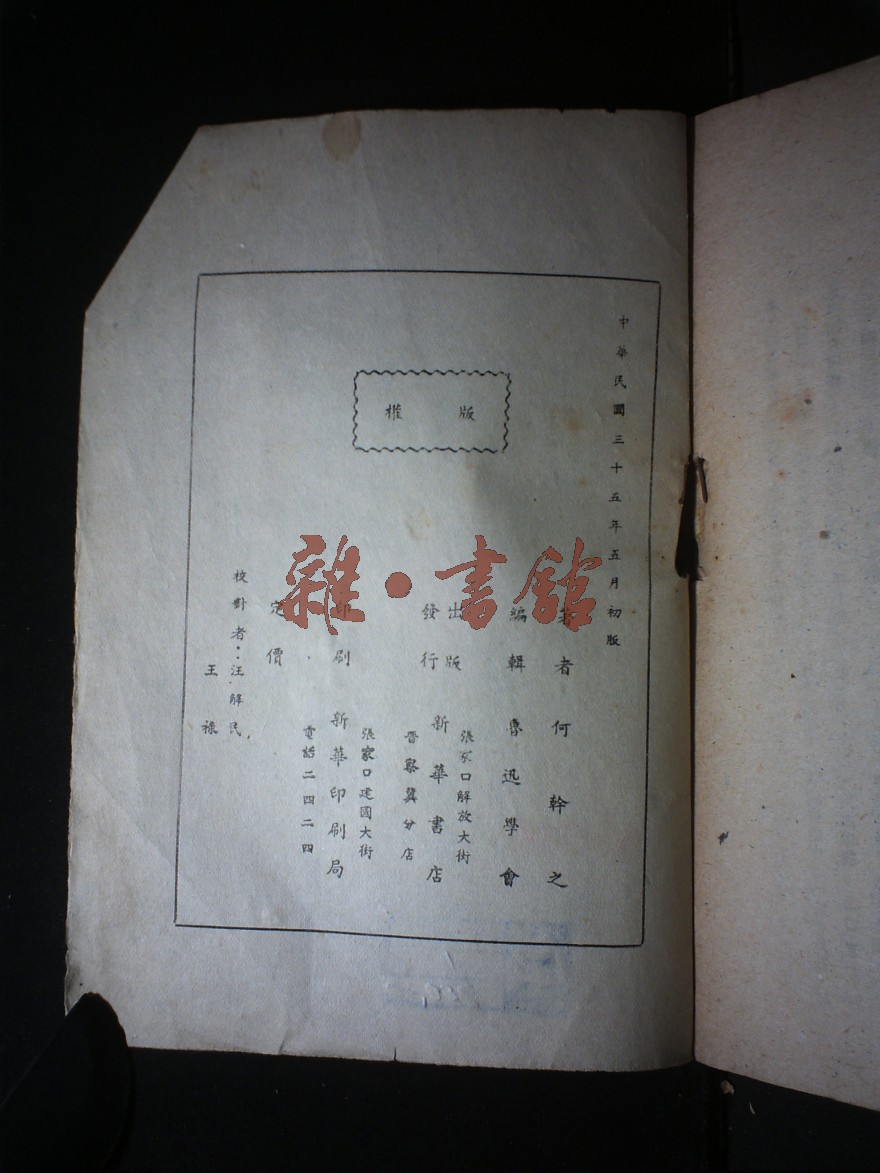 中華民國三十五年五月初版
版權
著者何幹之
編輯魯迅學會
出版
發行
新華書店
張家口解放大街
晋察冀分店
印刷新華印刷局
張家口建國大街
電話二四二四
定價
校對者：汪解民
王祿
雜·書館